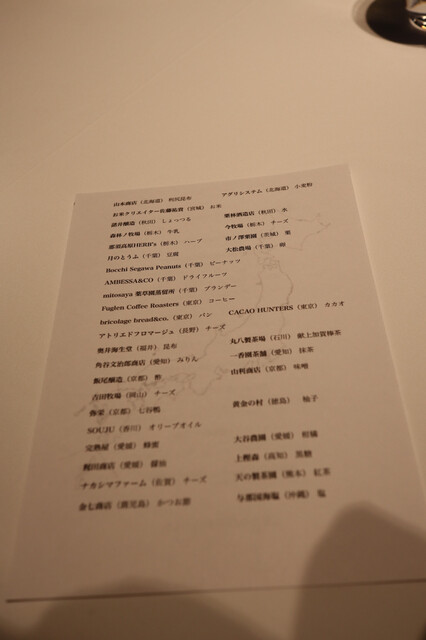 山本商店（北海道） 利尻昆布
アグリシステム（北海道） 小麦粉
お米クリエイター佐藤裕貴（宮城） お米
諸井醸造（秋田） しょっつる
栗林酒造店（秋田） 水
森林ノ牧場（栃木） 牛乳
今牧場（栃木） チーズ
那須高原HERB's（栃木） ハーブ
市ノ澤栗園（茨城） 栗
月のとうふ（千葉） 豆腐
大松農場（千葉） 卵
Bocchi Segawa Peanuts（千葉） ピーナッツ
AMBESSA&CO（千葉） ドライフルーツ
mitosaya 薬草園蒸留所（千葉） ブランデー
Fuglen Coffee Roasters（東京） コーヒー
bricolage bread&co.（東京） パン
CACAO HUNTERS（東京） カカオ
アトリエドフロマージュ（長野） チーズ
奥井海生堂（福井） 昆布
丸八製茶場（石川） 献上加賀棒茶
角谷文治郎商店（愛知） みりん
一香園茶舗（愛知） 抹茶
飯尾醸造（京都） 酢
山利商店（京都） 味噌
吉田牧場（岡山） チーズ
弥栄（京都） 七谷鴨
黄金の村（徳島） 柚子
SOUJU（香川） オリーブオイル
完熟屋（愛媛） 蜂蜜
大谷農園（愛媛） 柑橘
梶田商店（愛媛） 醤油
上樫森（高知） 黒糖
ナカシマファーム（佐賀） チーズ
天の製茶園（熊本） 紅茶
金七商店（鹿児島） かつお節
与那国海塩（沖縄） 塩